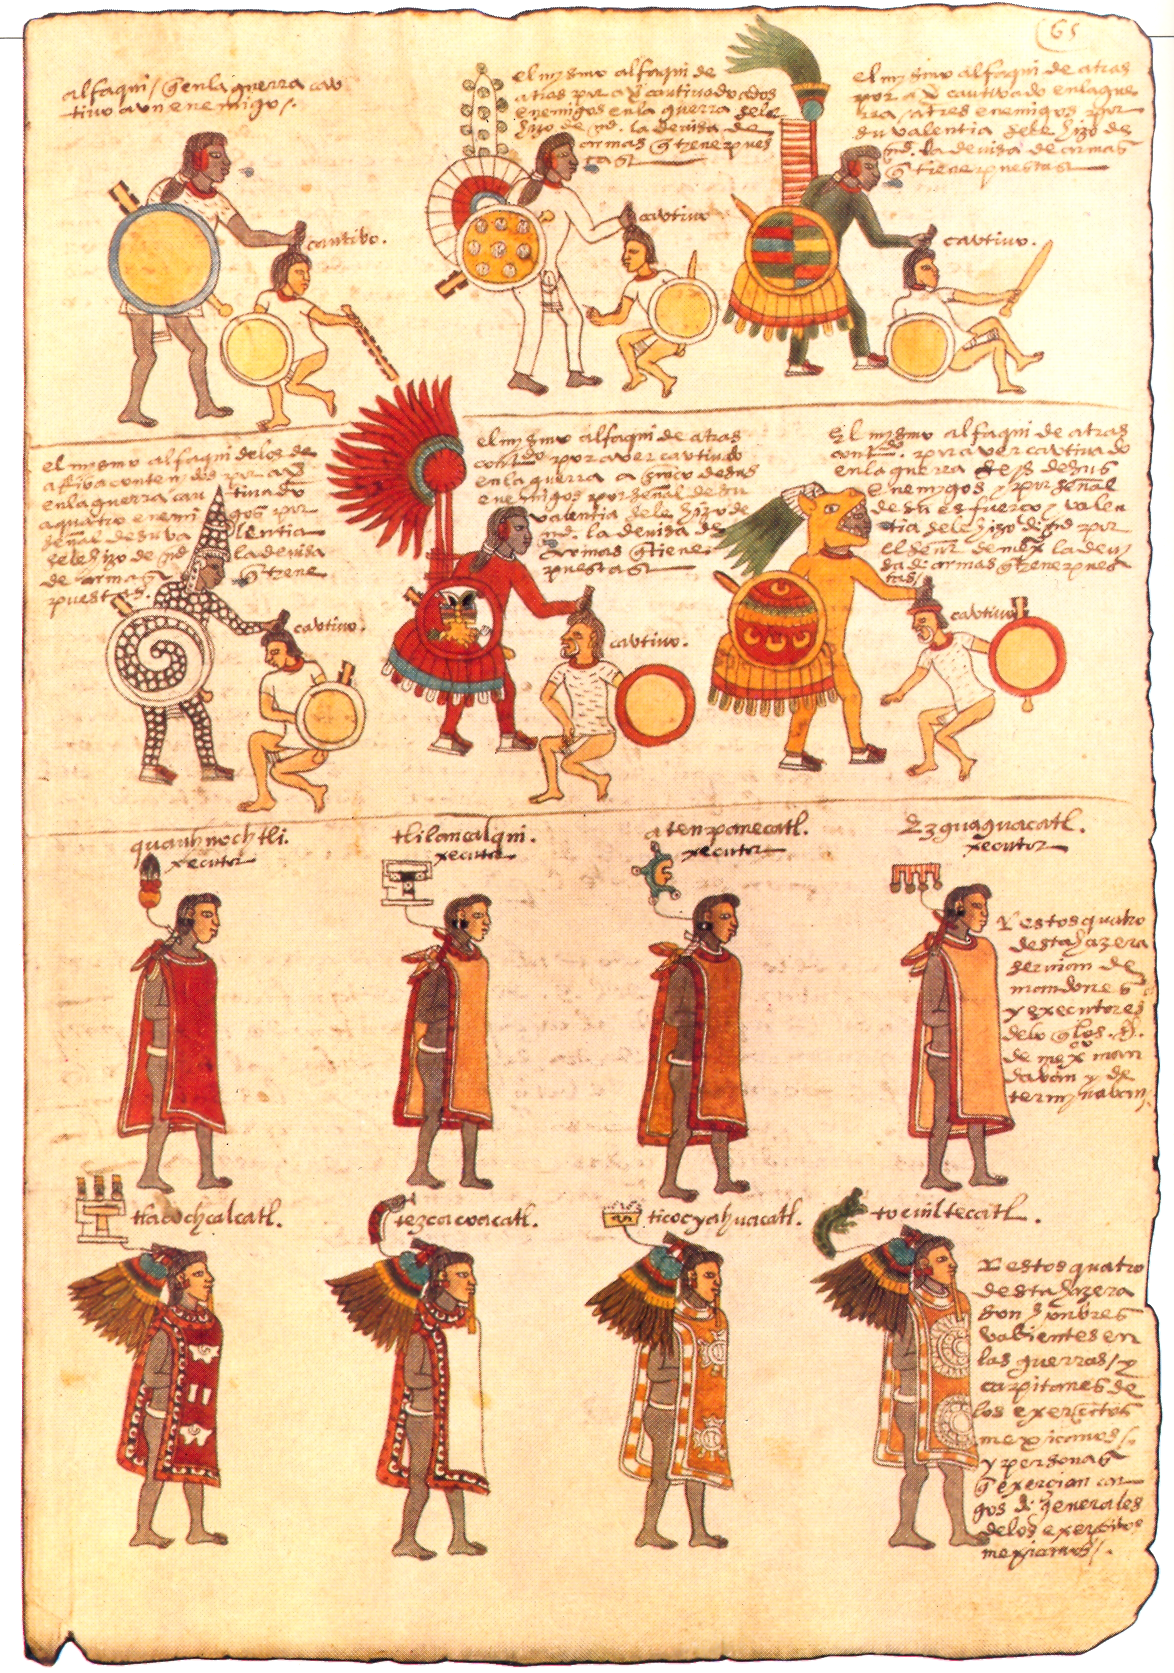 65
alfaqui / q̃ en la guerra cau
tivo a un enemigo /.
cautibo.
el mysmo alfaqui de
atras por a v̄ cautivado a dos
enemigos en la guerra sele
hizo de md. la devisa de
armas q̃ tiene pues
tas
cautivo
el mysmo alfaqui de atras
por a v̄ cautivado en la gue
rra / a tres enemigos por
su valentia sele hizo de
md. la devisa de armas
q̃ tiene puestas
cautivo.
el mismo alfaqui de los de
atras contenydos por a v̄
en la guerra cau tivado
a quatro enemi gos por
señal de su va lentia
sele hizo de md la devisa
de armas q̃ tiene
puestas.
cautivo.
el mysmo alfaqui de atras
contdo por aver cautivado
en la guerra a cinco de sus
enemigos por señal de su
valentia sele hizo de
md. la devisa de
armas q̃ tiene
puestas
cautivo.
El mysmo alfaqui de atras
contdo. por aver cautivado
en la guerra seys de sus
enemygos y por señal
de su esfuerço y valen
tia sele hizo de md por
el señr de mexco la devi
sa de armas q̃ tiene pues
tas /
cautivo
quauhnochtli.
xecutor
tlilancalqui.
xecutor
atenpanecatl.
xecutor
Ezguaguacatl.
xecutor
Y estos quatro
desta hazera
servian de
mandones
y executores
de lo q̃ los S.
de mexco man
davan y de
terminavan /
tlacochcalcatl.
tezcacoacatl.
ticocyahuacatl.
tocuiltecatl.
Y estos quatro
desta hazera
son honbres
valientes en
las guerras / y
capitanes de
los exerçitos
mexicanos /
y personas
q̃ exerçian car
gos de generales
de los exerçitos
mexicanos /.